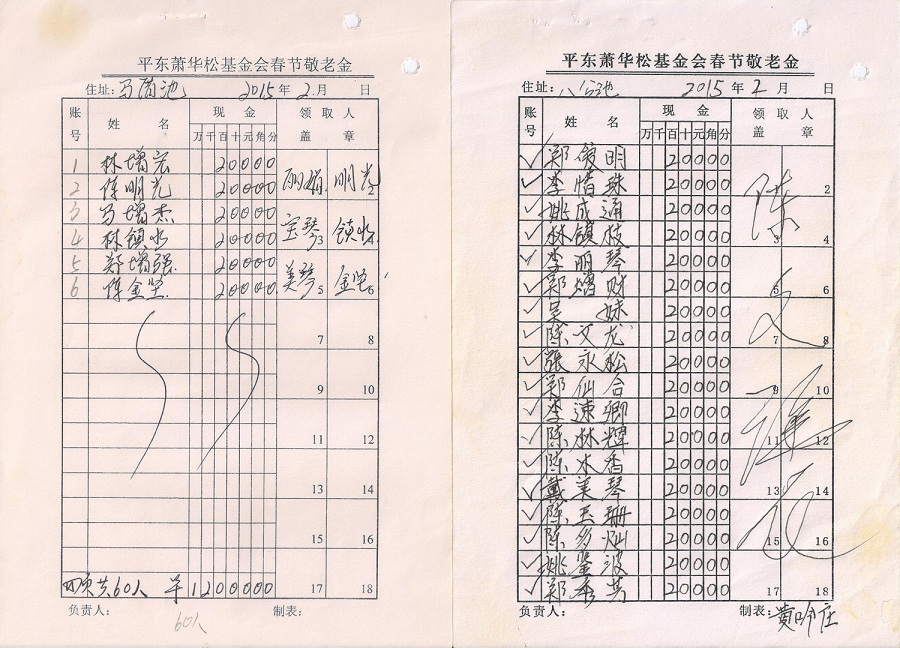 平东萧华松基金会春节敬老金
住址: 2015 年 2 月 日
账号 姓 名 现 金 领 取 人 盖 章
万 千 百 十 元 角 分
1 林增宏 20000
2 陈明光 20000 明光 2
3 马增杰 20000
4 林镇水 20000 宝琴 3 镇水 4
5 郑增强 20000
6 陈金坚 20000 美琴 5 金坚 6
7 8
9 10
11 12
13 14
15 16
共60人 1200000 17 18
负责人: 制表:
60人
平东萧华松基金会春节敬老金
住址: 2015 年 2 月 日
账号 姓 名 现 金 领 取 人 盖 章
万 千 百 十 元 角 分
✓ 郑俊明 20000
✓ 李惜珠 20000 2
✓ 姚成通 20000
✓ 林镇枝 20000 3 4
✓ 李丽琴 20000
✓ 郑增财 20000 5 6
✓ 吴妹 20000
✓ 陈文龙 20000 7 8
✓ 张永松 20000
✓ 郑仙合 20000 9 10
✓ 李速卿 20000
✓ 陈林辉 20000 11 12
✓ 陈木香 20000
✓ 戴美琴 20000 13 14
✓ 陈玉珊 20000
✓ 陈多灿 20000 15 16
✓ 姚鉴波 20000
✓ 郑秀芳 20000 17 18
负责人: 制表: 黄吟庄